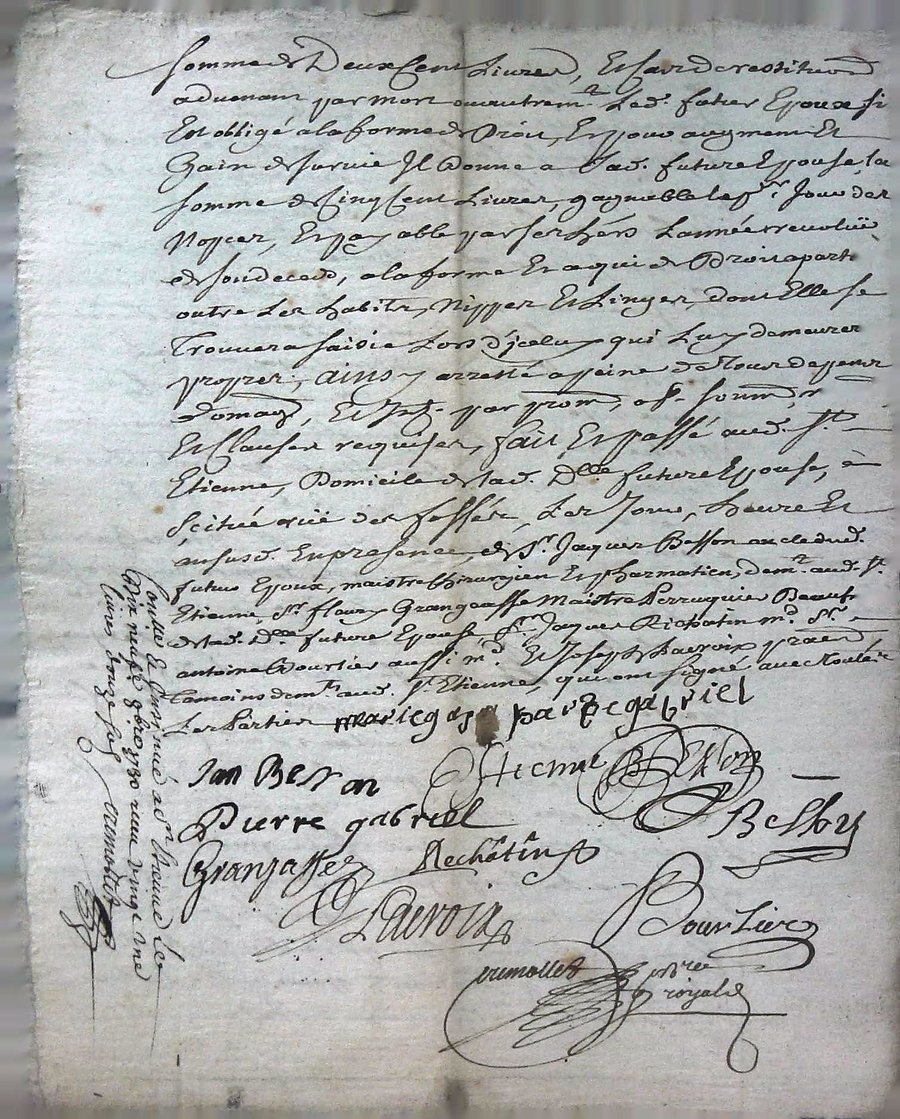 somme de Deux Cent Livres, Et cas de restitution
advenant par mort ou autremt. Led. futur Epoux si
Est obligé a la forme de Droit, Et pour augment Et
Gain de survie Il donne a lad. future Epouse, la
somme de Cinq Cent Livres, gagnable le Jour des
Nopces, Et payable par ses hers L'année revoluë
de son deced, a la forme Et a qui de Droit apart.
outre Les habits, Nippes Et Linges, dont Elle se
Trouvera saisie Lors d'jceluy qui Luy demeurer
propres, ainsy arresté a peine de Tous depens
Domag, Et par prom, soumn, r
Et Clauses requises, fait Et passé aud. St
Etienne, Domicile de lad. Dlle future Epouse,
scitué ruë des fossés, Les Jour, heure Et
an susd. En presence, de Sr. Jaques Besson oncle dud.
futur Epoux, maistre Chirurgien Et pharmatien, demt. aud. St.
Etienne, Sr. fleury Grangeasse Maistre Perruquier Beaufr
de lad. Dlle future Epouse, Sr. Jaques Richatin md. Sr.
antoine Bourlier aussi md. Et Joseph Lacroix
Temoins demts aud. St. Etienne, qui ont signé avec
Les Parties marie gabriel
Jan Besson Etienne Besson
Pierre gabriel Besson
Granjasse Rechâtin
Lacroix Bourlier
crumollet nore
royal
Controllé Et Insinué a St Etienne le
vin neuf 9bre 1730 reçu vingt une
Livres douze sols crumollet